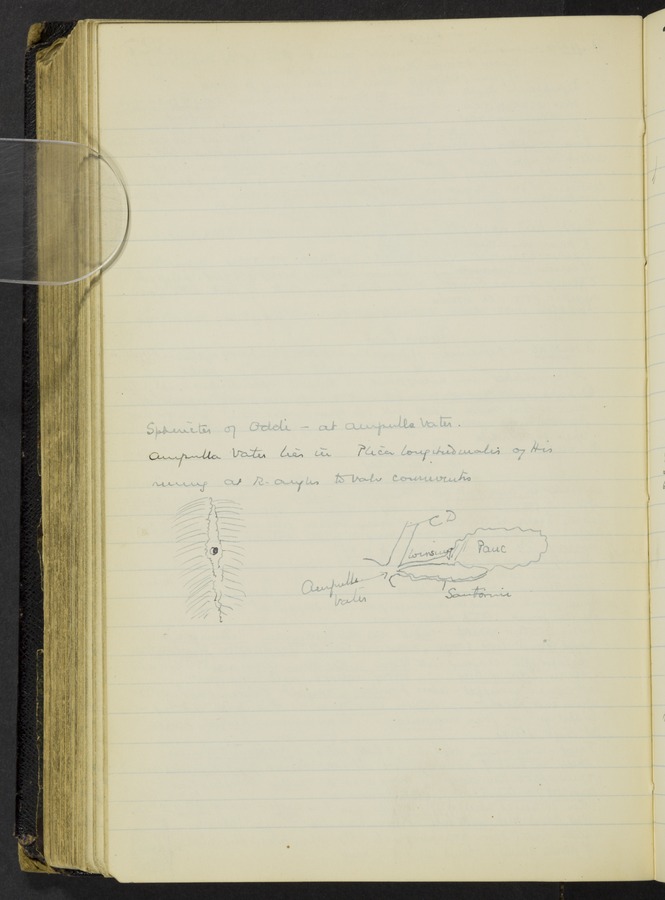 Sphincter of Oddi - at ampulla Vater.
Ampulla Vater lies in Plica longitudinalis of His
runing at R. angles to valv conniventes
C D
Wirsung
Panc
Ampulla
Vater
Santorini